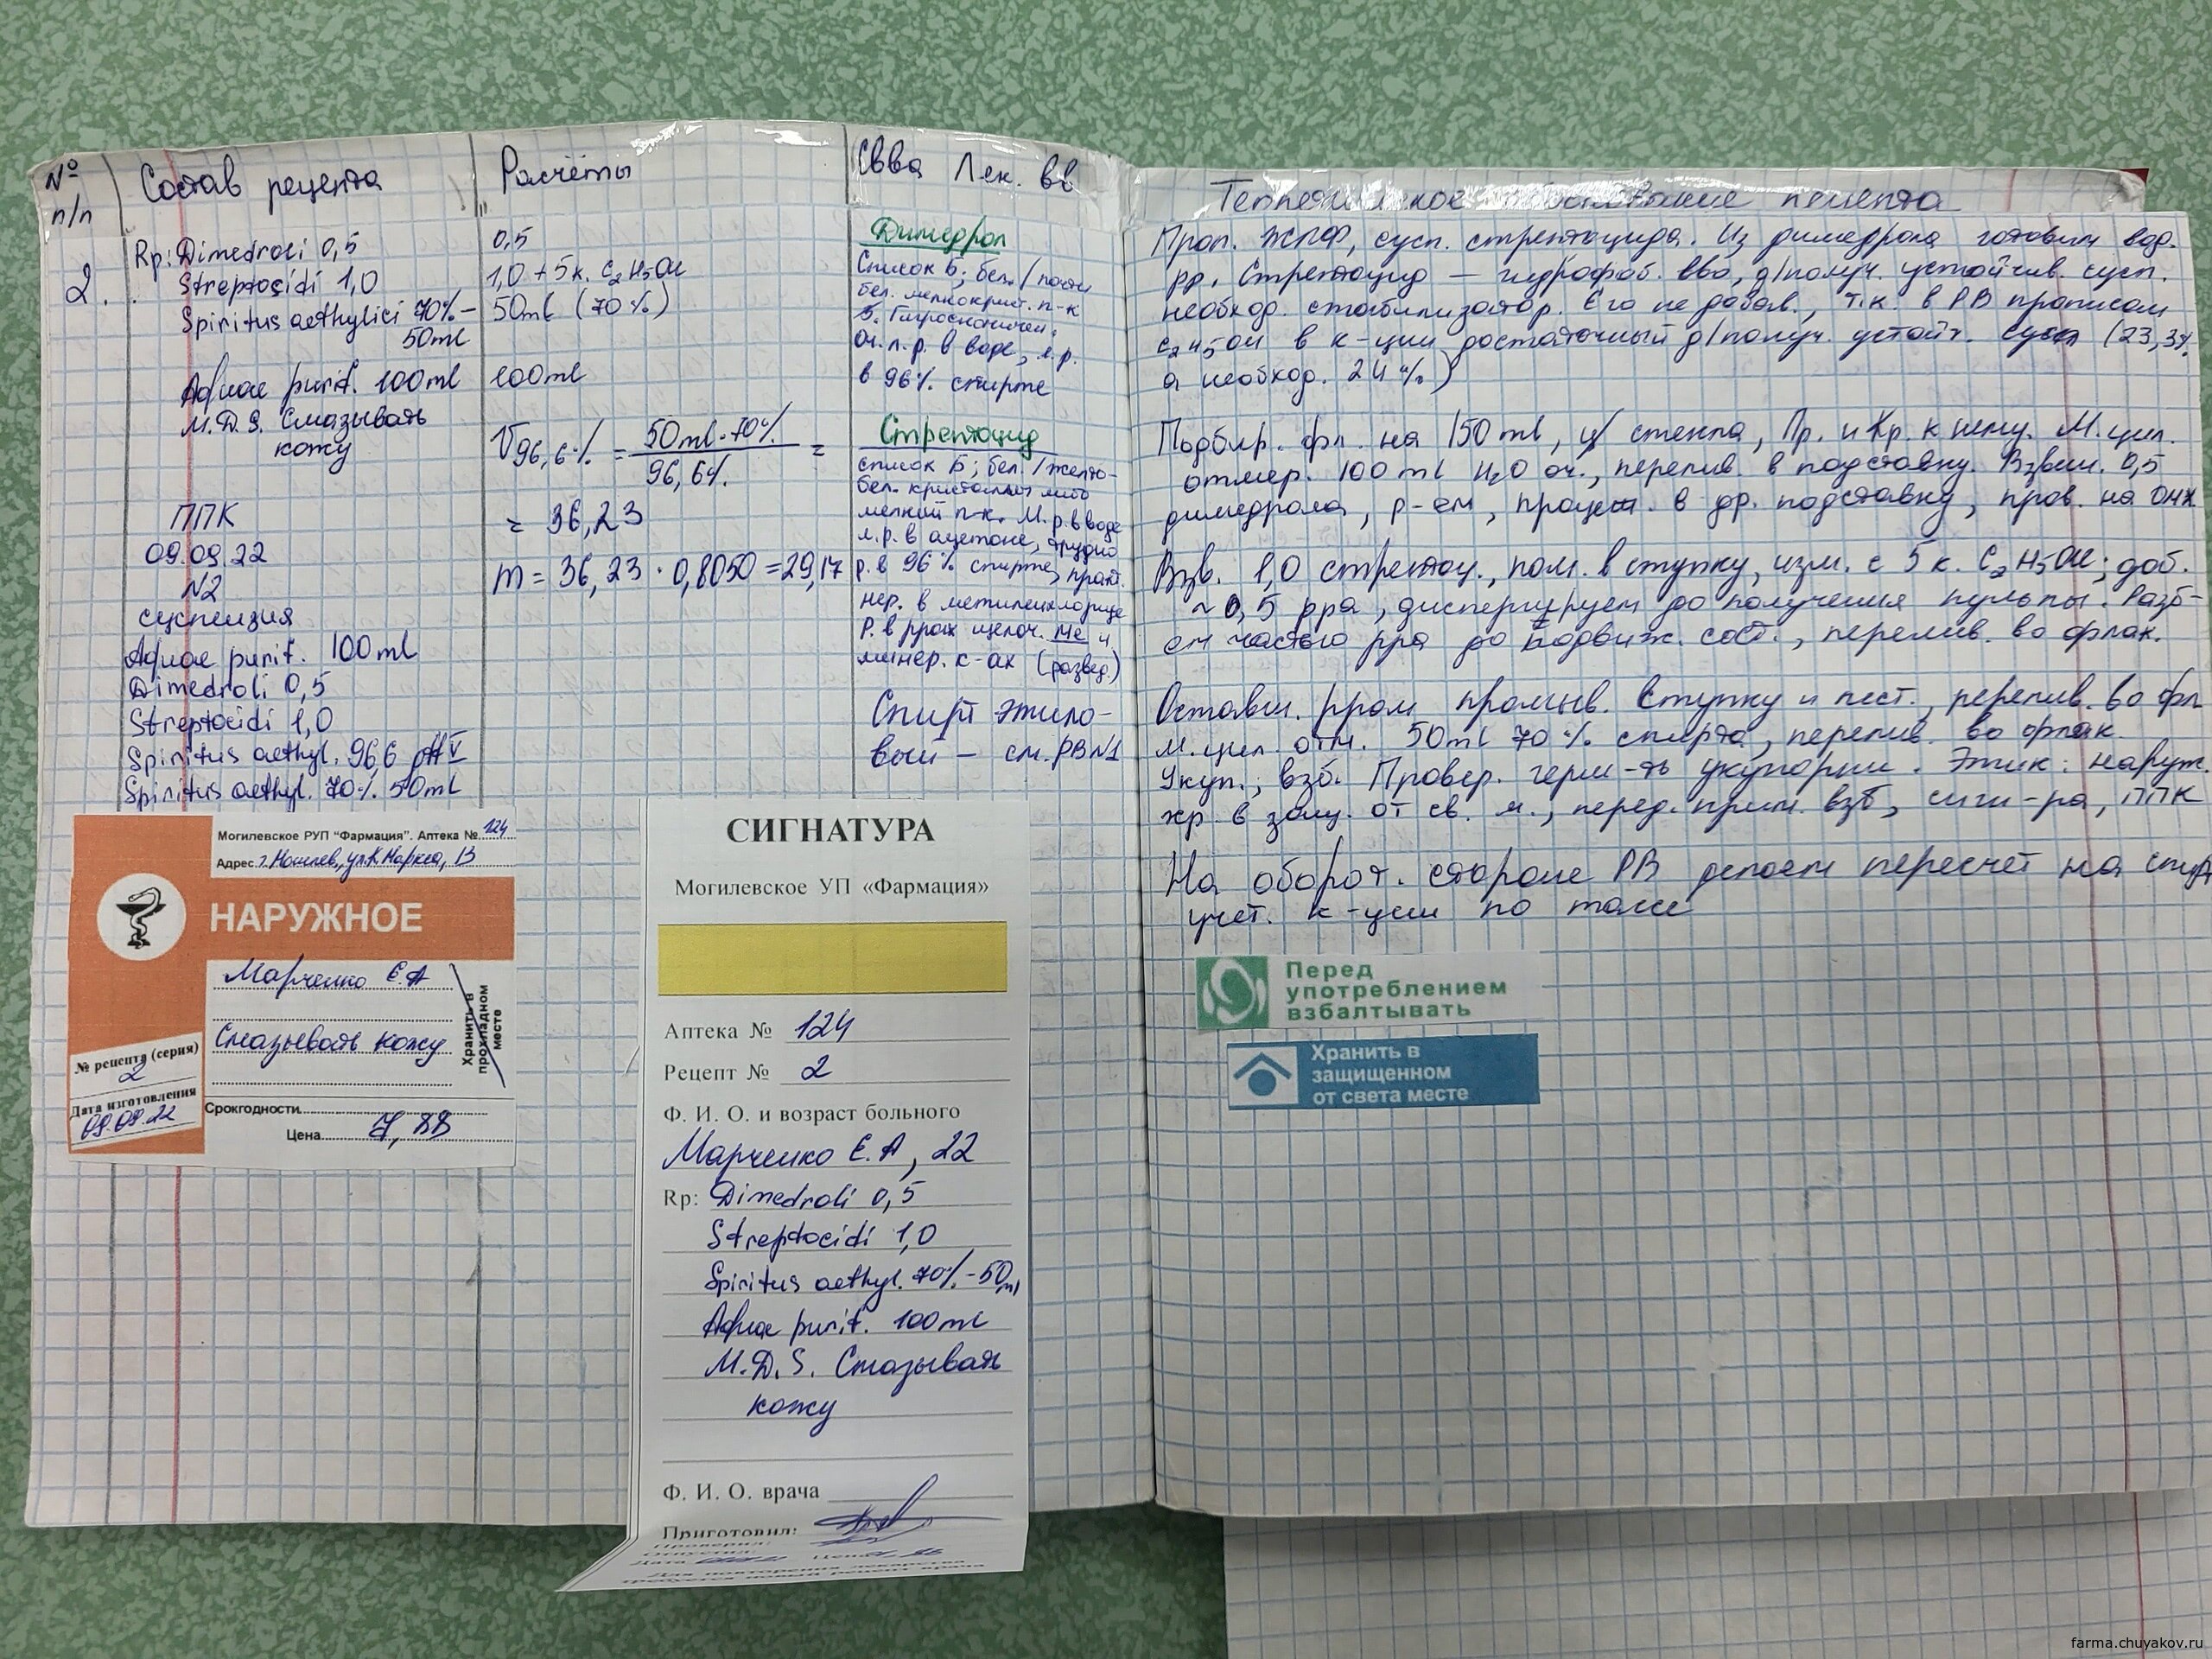 № п/п
Состав рецепта
Расчёты
Свва Лек. вв
2.
Rp: Dimedroli 0,5
Streptocidi 1,0
Spiritus aethylici 70% –
50ml
Aquae purif. 100ml
M.D.S. Смазывать
кожу
ППК
09.09.22
N2
суспензия
Aquae purif. 100ml
Dimedroli 0,5
Streptocidi 1,0
Spiritus aethyl. 96,6 gtt V
Spiritus aethyl. 70% 50ml
0,5
1,0 + 5к. C2H5OH
50ml (70%)
100ml
V96,6% = 50ml·70% / 96,6% =
= 36,23
m = 36,23 · 0,8050 = 29,17
Димедрол
Список Б; бел./почти
бел. мелкокрист. п-к
Гигроскопичен;
Оч. л.р. в воде, л.р.
в 96% спирте
Стрептоцид
список Б; бел./желто-
бел. кристаллы либо
мелкий п-к. М.р. в воде
л.р. в ацетоне, трудно
р. в 96% спирте, практ.
нер. в метиленхлориде
Р. в ррах щелоч. Ме и
минер. к-ах (развед.)
Спирт этило-
вый – см. РВN1
Проп. ЖЛФ, сусп. стрептоцида. Из димедрола готовим вод.
рр. Стрептоцид – гидрофоб. вво, д/получ. устойчив. сусп.
необход. стабилизатор. Его не добав., т.к. в РВ прописан
C2H5OH в к-ции достаточный д/получ. устойч. сусп (23,3%,
а необход. 24%)
Подбир. фл. на 150ml, ц/ стекла, Пр. и Кр. к нему. М. цил.
отмер. 100ml H2O оч., перелив. в подставку. Взвеш. 0,5
димедрола, р-ем, процеж. в др. подставку, пров. на ОМХ
Взв. 1,0 стрептоц., пом. в ступку, изм. с 5 к. C2H5OH; доб.
~0,5 рра, диспергируем до получения пульпы. Разб-
ем частью рра до подвиж. сост., перелив. во флак.
Оставш. рром промыв. ступку и пест., перелив. во фл
М. цил. отм. 50ml 70% спирта, перелив. во флак.
Укуп., взб. Провер. герм-ть укупорки. Этик: наруж.
хр. в защ. от св. м., перед. прим. взб, сигн-ра, ППК
На оборот. стороне РВ делаем пересчёт на спирт
учёт. к-ции по массе
Могилевское РУП "Фармация". Аптека № 124
Адрес г. Могилев, ул. К. Маркса, 13
НАРУЖНОЕ
Марченко Е.А
Смазывать кожу
Хранить в прохладном месте
№ рецепта (серия)
2
Дата изготовления
09.09.22
Срок годности
Цена 7,88
СИГНАТУРА
Могилевское УП «Фармация»
Аптека № 124
Рецепт № 2
Ф. И. О. и возраст больного
Марченко Е.А, 22
Rp: Dimedroli 0,5
Streptocidi 1,0
Spiritus aethyl. 70% – 50ml
Aquae purif. 100ml
M.D.S. Смазывать
кожу
Ф. И. О. врача
Приготовил:
Проверил:
Отпустил:
Дата
Цена
Для повторения лекарства
требуется новый рецепт врача
Перед
употреблением
взбалтывать
Хранить в
защищенном
от света месте
farma.chuyakov.ru